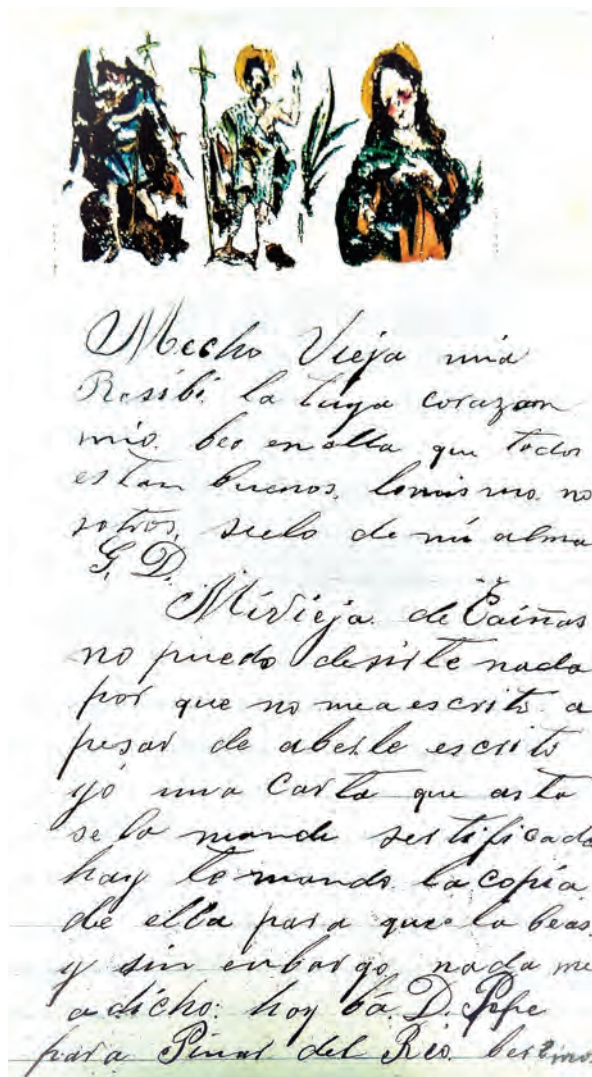 Mecho Vieja mia
Resibi la tuya corazon
mio beo en ella que todos
estan buenos. lo mismo no
sotros, sielo de mi alma
G. D.
Mi Vieja. de Caiñas
no puedo desirte nada
por que no mea escrito a
pesar de aberle escrito
yó una Carta que asta
se la mande sertificada
hay te mando la copia
de ella para que la beas,
y sin enbargo nada me
a dicho: hoy bá D. Pepe
para Pinar del Rio.